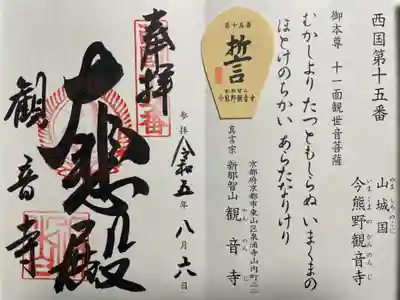 西国第十五番
山城国
やましろのくに
今熊野観音寺
いまくまのかんのんじ
御本尊 十一面観世音菩薩
むかしより たつともしらぬ いまくまの
ほとけのちかい あらたなりけり
京都府京都市東山区泉涌寺山内町三二
真言宗 新那智山 観音寺
第十五番
誓言
新那智山
今熊野観音寺
奉拝
参拝 令和五年八月六日
大悲殿
観音寺